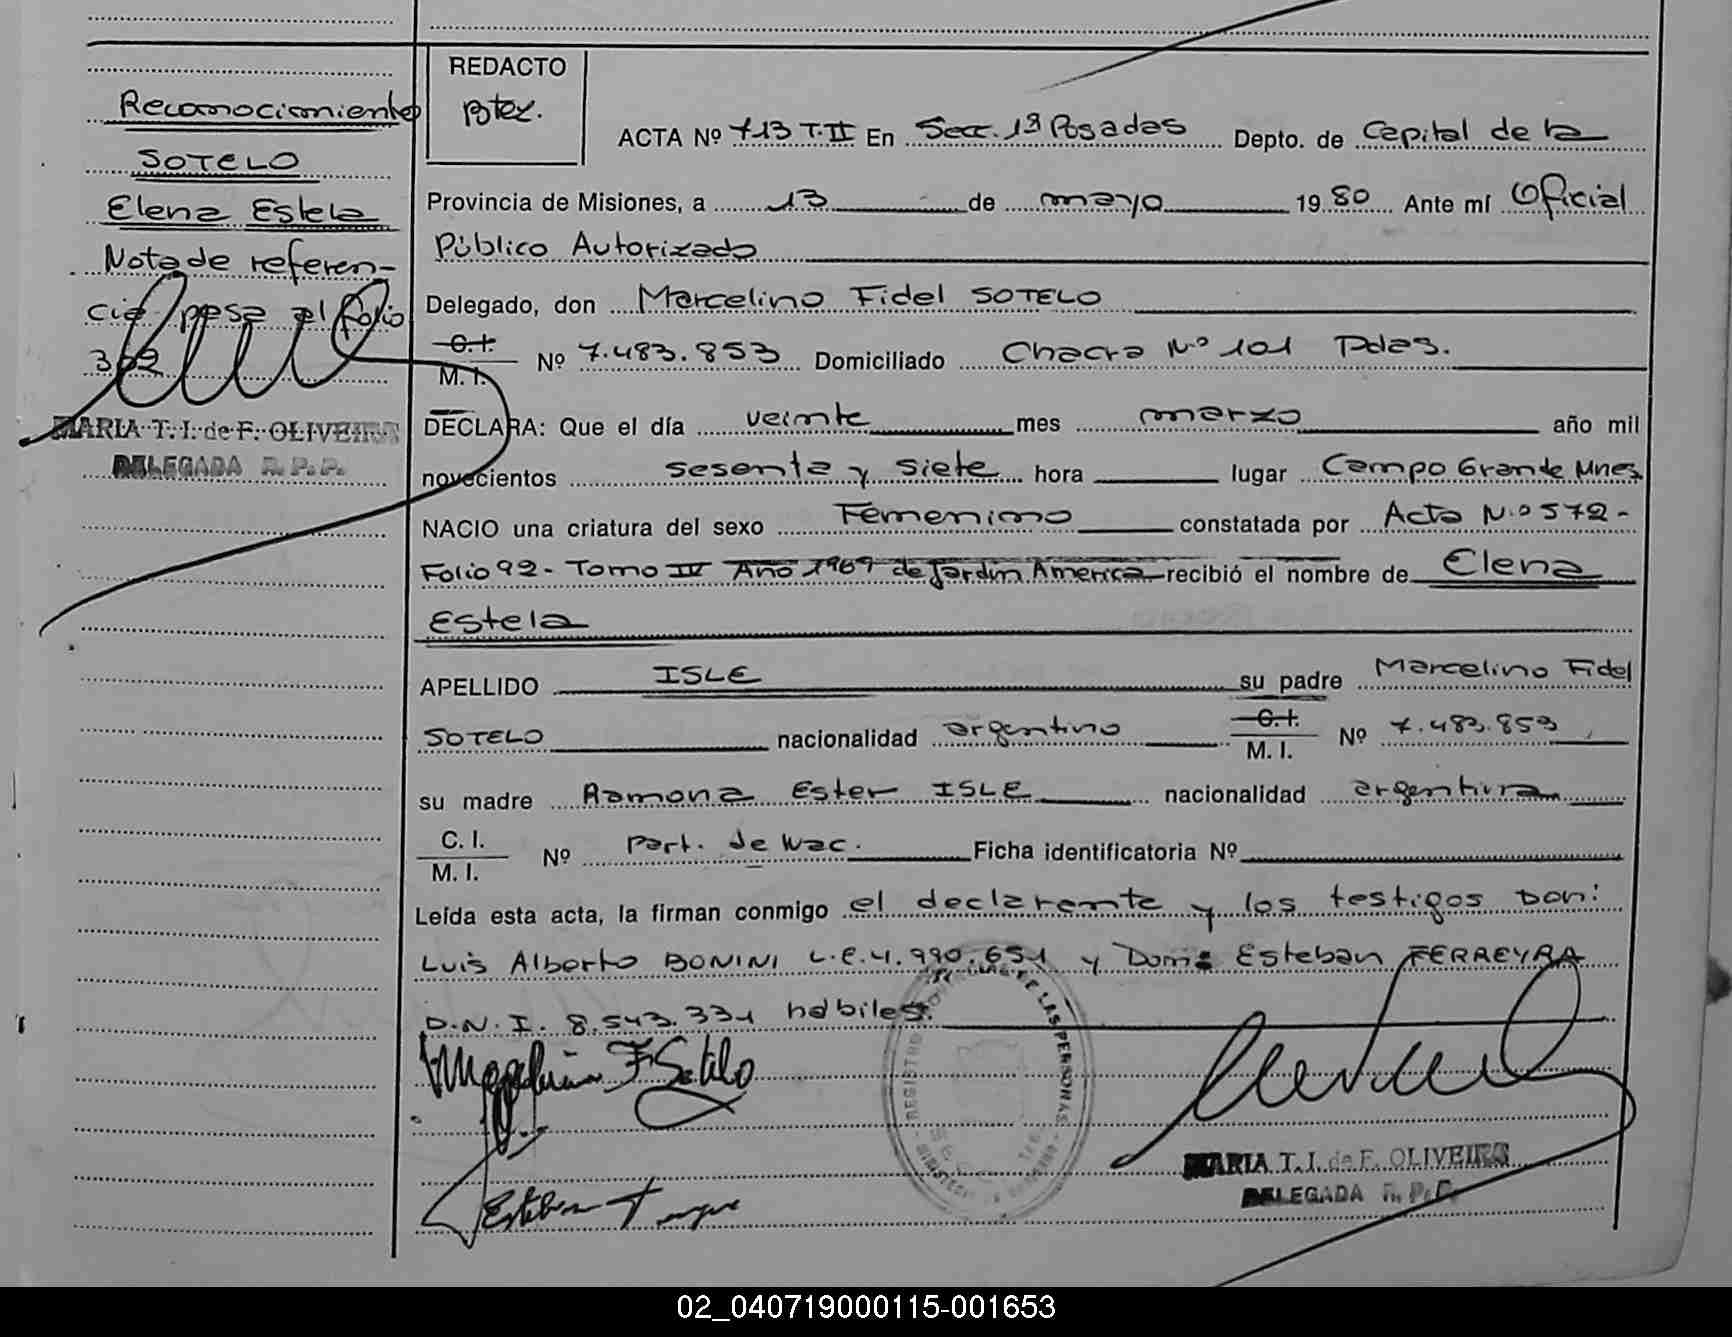 Reconocimiento
SOTELO
Elena Estela
Nota de referen-
cia pasa al folio
382
MARIA T. I. de F. OLIVEIRA
DELEGADA R. P. P.
REDACTO
ACTA Nº 713 T. II En Secc. 1ª Posadas Depto. de Capital de la
Provincia de Misiones, a 13 de mayo 1980 Ante mí Oficial
Público Autorizado
Delegado, don Marcelino Fidel SOTELO
C. I.
M. I. Nº 7.483.853 Domiciliado Chacra Nº 101 Pdas.
DECLARA: Que el día veinte mes marzo año mil
novecientos sesenta y siete hora lugar Campo Grande Mnes
NACIO una criatura del sexo Femenino constatada por Acta N.º 572-
Folio 92- Tomo IV Año 1969 de Jardin America recibió el nombre de Elena
Estela
APELLIDO ISLE su padre Marcelino Fidel
SOTELO nacionalidad argentino C. I.
M. I. Nº 7.483.853
su madre Ramona Ester ISLE nacionalidad argentina
C. I.
M. I. Nº Part. de Nac. Ficha identificatoria Nº
Leída esta acta, la firman conmigo el declarante y los testigos Don:
Luis Alberto BONINI L.E. 4.990.651 y Don Esteban FERREYRA
D.N.I. 8.543.331 hábiles.
F. Sotelo
REGISTRO DE LAS PERSONAS
Esteban
MARIA T. I. de F. OLIVEIRA
DELEGADA R. P. P.
02_040719000115-001653